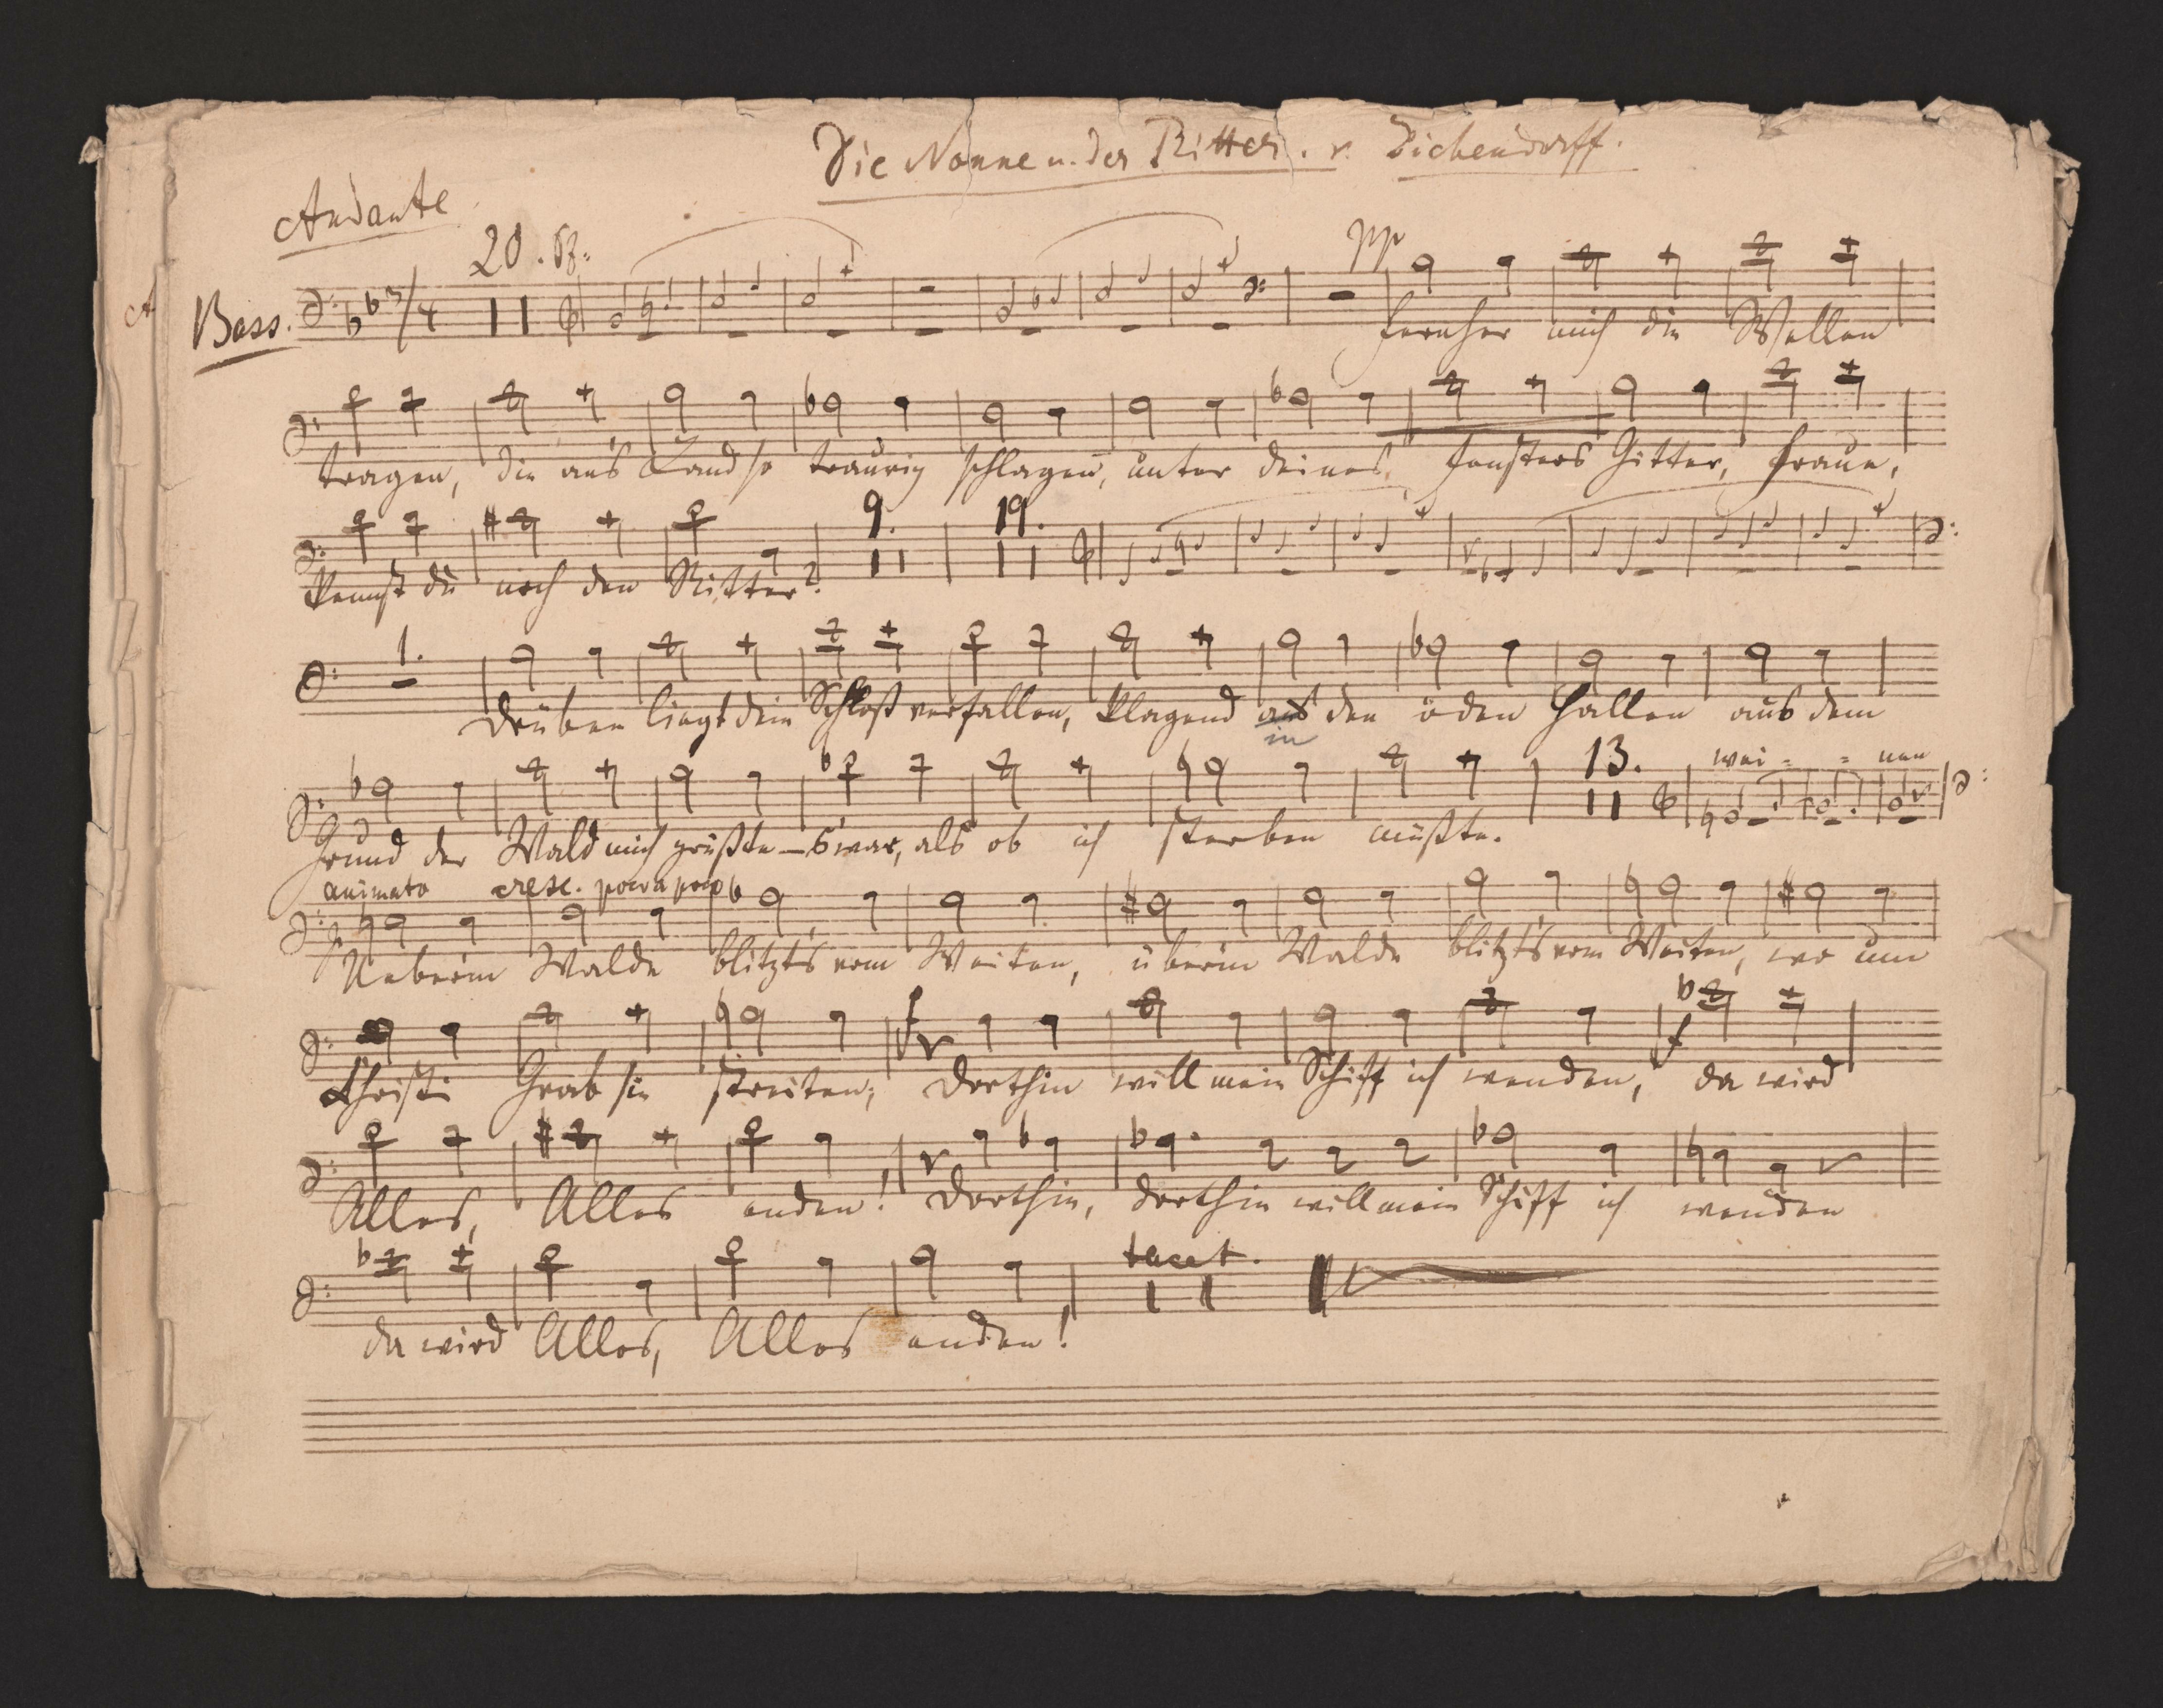 Die Nonne u. der Ritter. v. Eichendorff.
Andante
20.
Bass. 3/4
pp
Fernher mich die Wellen
tragen, die an's Land so traurig schlagen, unter deines Fensters Gitter, Fraue,
9. 19.
kennst du noch den Ritter?
1.
Drüben liegt dein Schloß verfallen, klagend aus den öden Hallen aus dem
in
13. wei - - nen
Grund der Wald mich grüßte – 's war, als ob ich sterben müßte.
animato cresc. poco a poco
Ueber'm Walde blitzt's vom Weiten, über'm Walde blitzt's vom Weiten, wo um
f f
Christi Grab sie streiten; dorthin will mein Schiff ich wenden, da wird
Alles, Alles enden! Dorthin, dorthin will mein Schiff ich wenden
tacet.
da wird Alles, Alles enden!